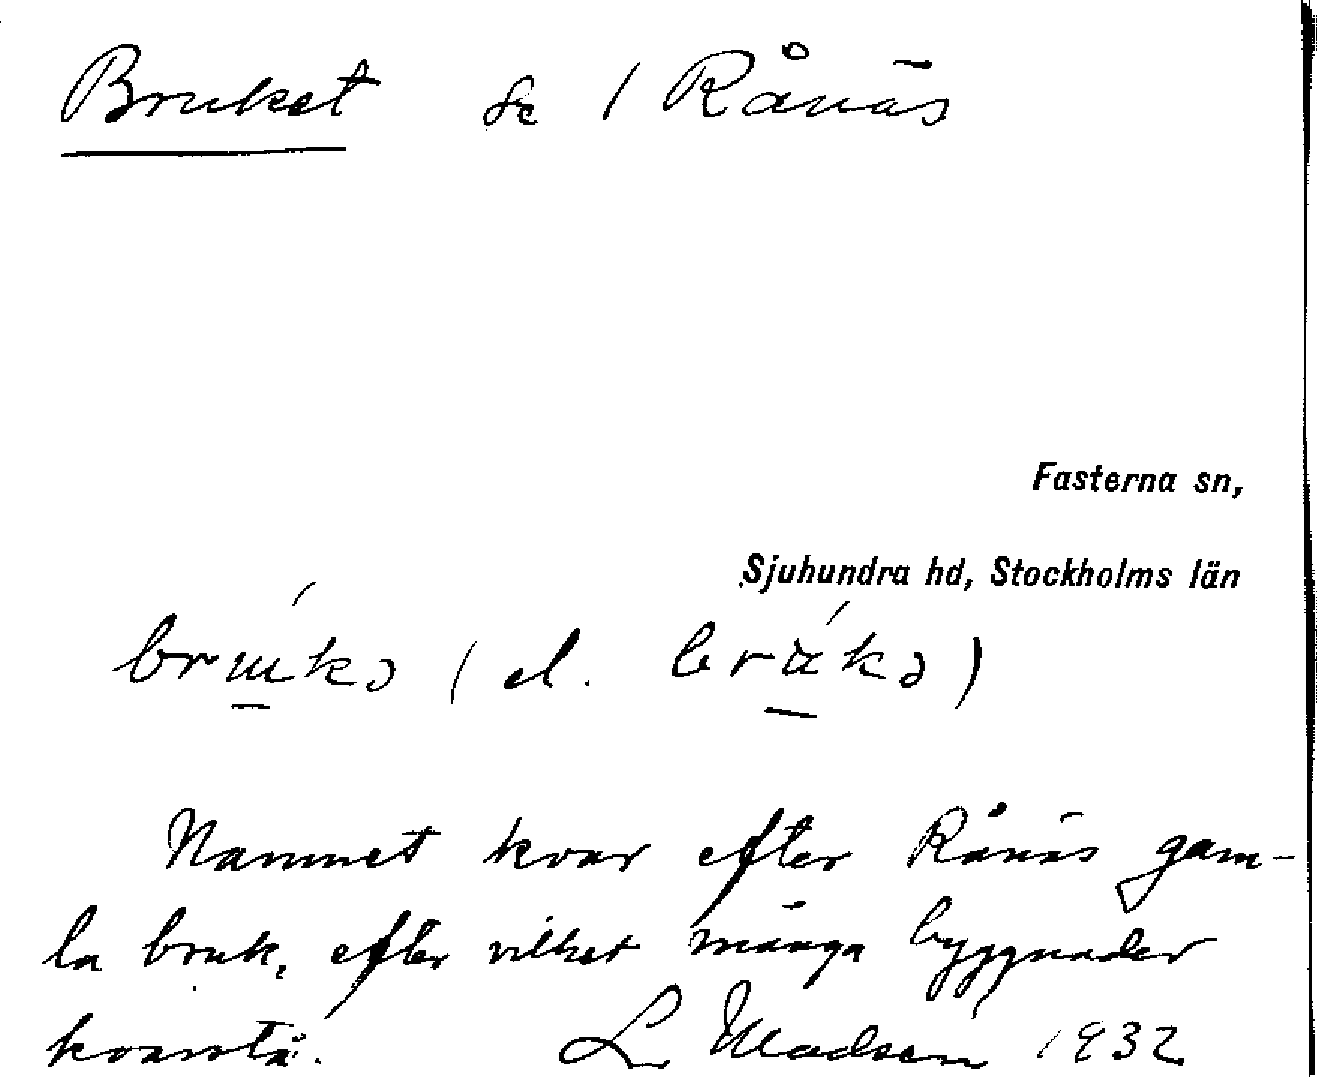 Bruket / Rånäs
Fasterna sn,
Sjuhundra hd, Stockholms län
(el.
Namnet kvar efter Rånäs gam-
la bruk, efter vilket många byggnader
kvarstå. L. Madsen 1932